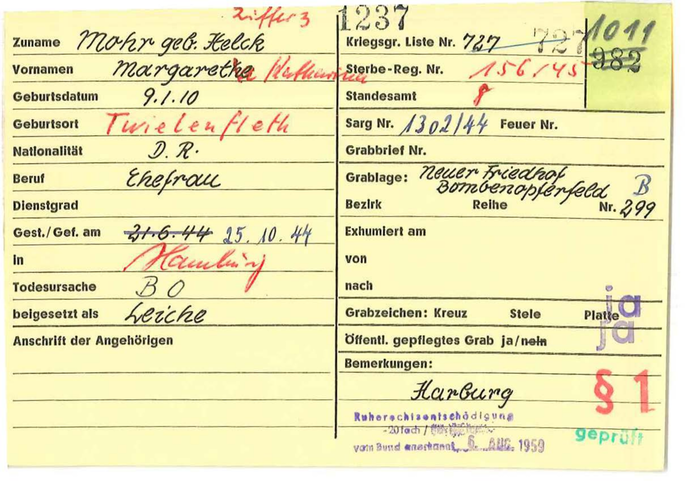 Ziffer 3
1237
Zuname Mohr geb. Helck
Vornamen Margarethe Katharina
Geburtsdatum 9.1.10
Geburtsort Twielenfleth
Nationalität D. R.
Beruf Ehefrau
Dienstgrad
Gest./Gef. am 21.6.44 25.10.44
in Hamburg
Todesursache B O
beigesetzt als Leiche
Anschrift der Angehörigen
Kriegsgr. Liste Nr. 727 727 1011
982
Sterbe-Reg. Nr. 156/45
Standesamt 8
Sarg Nr. 1302/44 Feuer Nr.
Grabbrief Nr.
Grablage: Neuer Friedhof
Bombenopferfeld B
Bezirk Reihe Nr. 299
Exhumiert am
von
nach
ja
Grabzeichen: Kreuz Stele Platte
ja
Öffentl. gepflegtes Grab ja/nein
Bemerkungen:
Harburg
§ 1
Ruherechtsentschädigung
-20fach /
vom Bund anerkannt 6. AUG. 1959
geprüft